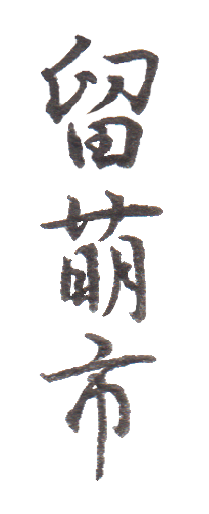 留萌市